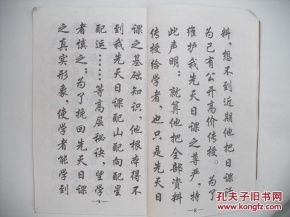 料，想不到近期他把日课
为己有公开高价传授。为了
维护我先天日课之尊严，特
此声明：就算他把全部资料
传授给学者，也只是先天日
课之基础知识，他根本得不
到我先天日课配山配向配星
配运……等高层秘诀，望学
者慎之。为了挽回先天日课
之真实形象，使学者能学到